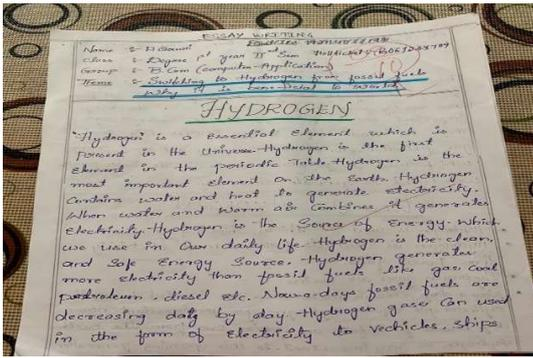 ESSAY WRITING
Name : D Gowri
Class : Degree 1st year IInd Sem Hallticket
Group : B.Com (computer Application)
Theme : Switching to Hydrogen from fossil fuels
Why it is beneficial to World
HYDROGEN
Hydrogen is a Essential Element which is
present in the Universe. Hydrogen is the first
Element in the periodic Table. Hydrogen is the
most important Element on the Earth. Hydrogen
Contains water and heat to generate Electricity.
When water and warm air Combines it generates
Electricity. Hydrogen is the Source of Energy. Which
we use in Our daily life. Hydrogen is the clean,
and Safe Energy Source. Hydrogen generates
more Electricity than fossil fuels like gas, Coal
diesel Etc. Now-a-days fossil fuels are
decreasing day by day. Hydrogen gases Can used
in the form of Electricity to vechicles, ships